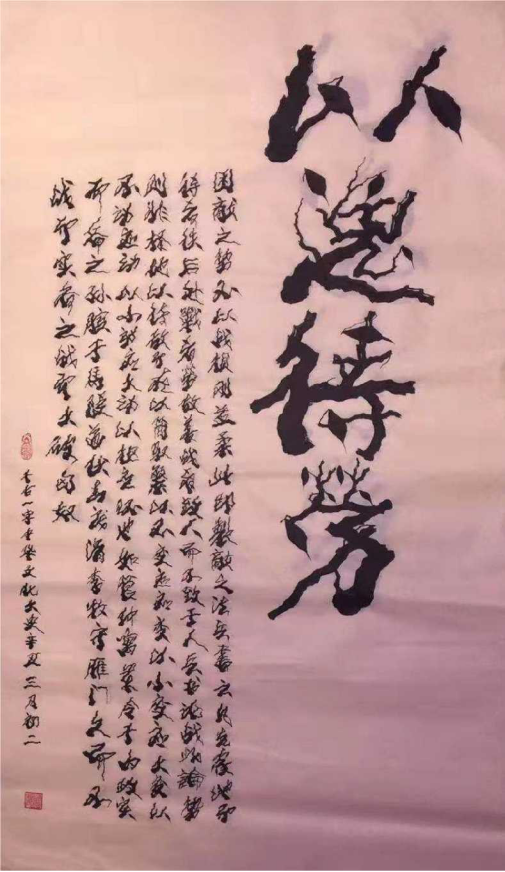 以逸待勞
困敵之势不以战損刚益柔此即製敵之法兵書云凡先處地而
待者佚后处戰者劳故善战者致人而不致于人兵书论战此論势
则非择地以待敌而在以简驭繁以不变应变以小变应大变以
不动应动以小动应大动以枢应环也如管仲寓軍令于内政实
而备之孙膑于马陵道伏击庞涓李牧守雁门久而不
战而实备之战而大破匈奴
文化大 辛丑三月初二